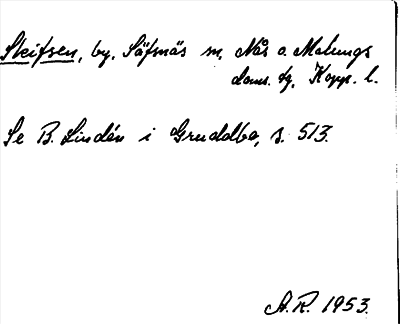 Skifsen, by, Säfsnäs sn, Nås o. Malungs
doms. tg, Kopp. l.
Se B. Lindén i Gruddbo, s. 513.
A.R. 1953.